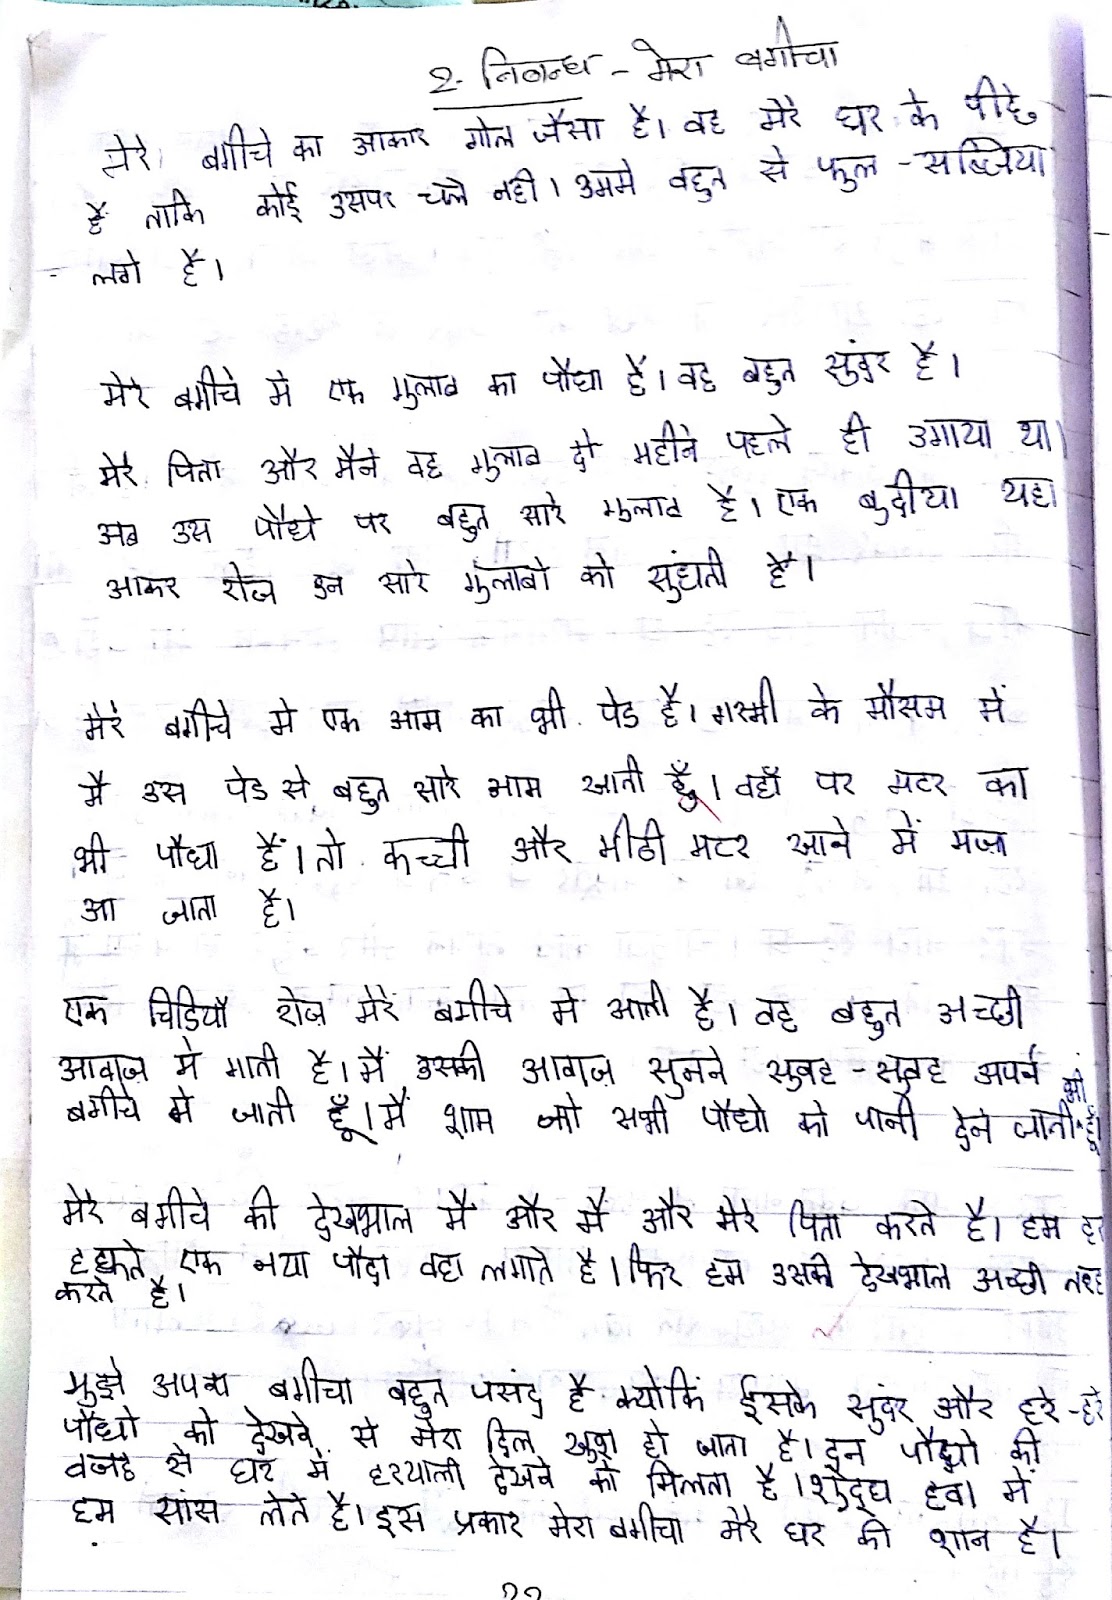 2. निबन्ध - मेरा बगीचा
मेरे बगीचे का आकार गोल जैसा है। वह मेरे घर के पीछे
है ताकि कोई उसपर चले नही। उसमे बहुत से फुल - सब्जिया
लगे है।
मेरे बगीचे मे एक गुलाब का पौधा है। वह बहुत सुंदर है।
मेरे पिता और मैने वह गुलाब दो महीने पहले ही उगाया था।
अब उस पौधे पर बहुत सारे गुलाब है। एक बुढीया यहा
आकर रोज उन सारे गुलाबो को सुंघती है।
मेरे बगीचे मे एक आम का भी पेड है। गरमी के मौसम में
मै उस पेड से बहुत सारे आम खाती हूँ। वहाँ पर मटर का
भी पौधा हैं। तो कच्ची और मीठी मटर खाने में मज़ा
आ जाता है।
एक चिडियाँ रोज़ मेरे बगीचे मे आती है। वह बहुत अच्छी
आवाज़ मे गाती है। मैं उसकी आवाज़ सुनने सुबह - सुबह अपने
बगीचे मे जाती हूँ। मैं शाम को सभी पौधो को पानी देने भी जाती हूँ।
मेरे बगीचे की देखभाल मै और मै और मेरे पिता करते है। हम हर
हफ्ते एक नया पौदा वहा लगाते है। फिर हम उसकी देखभाल अच्छी तरह
करते है।
मुझे अपना बगीचा बहुत पसंद है क्योंकिं ईसके सुंदर और हरे - हरे
पौधो को देखने से मेरा दिल खुश हो जाता है। इन पौधो की
वजह से घर में हरयाली देखने को मिलता है। शुद्ध हवा में
हम सांस लेते है। इस प्रकार मेरा बगीचा मेरे घर की शान है।